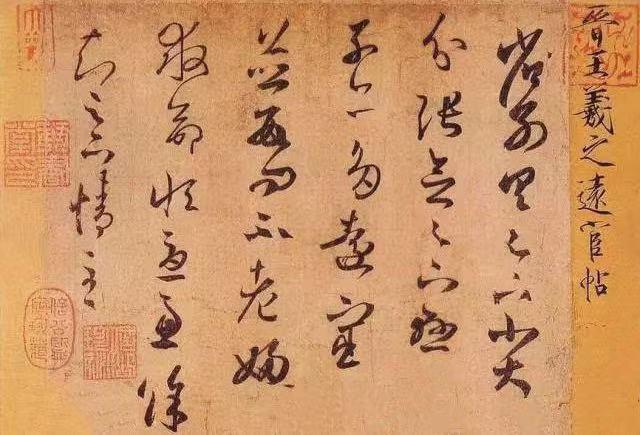 晉王羲之遠宦帖
省別具足下小大
分張念足下懸
子亦多遠宦
並數問不老婦
救命恒憂慮餘
知足下情至